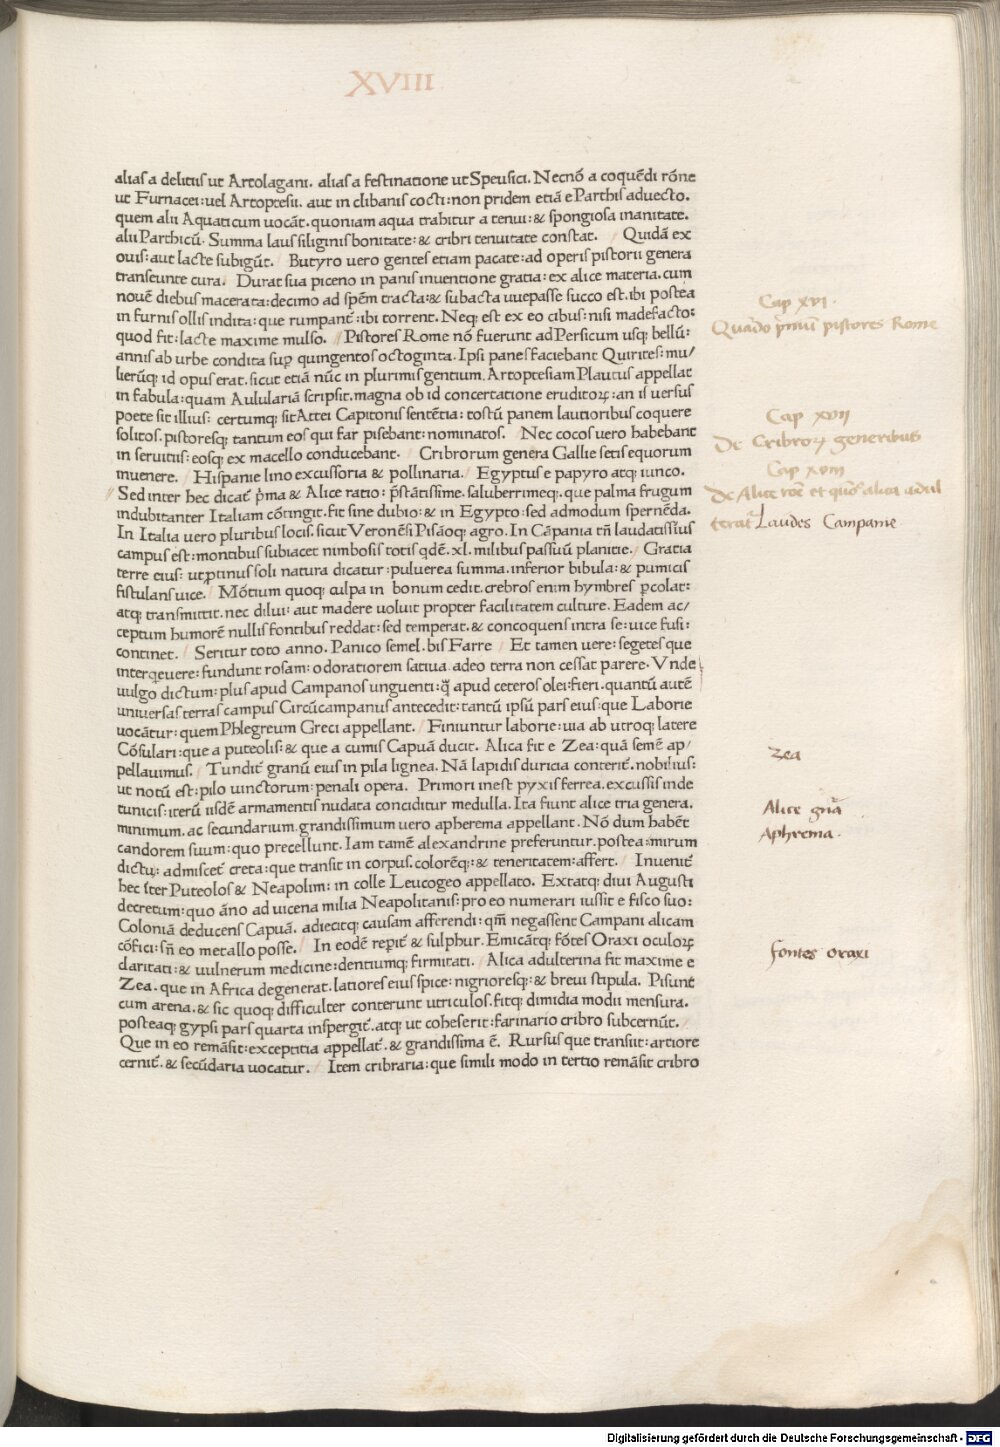 XVIII
alias a delitiis ut Artolagani. alias a festinatione ut Speusici. Necnõ a coquẽdi rõne
ut Furnacei: uel Artoptesii. aut in clibanis cocti: non pridem etiã e Parthis aduecto.
quem alii Aquaticum uocãt. quoniam aqua trahitur a tenui: & spongiosa inanitate.
alii Parthicũ. Summa laus siliginis bonitate: & cribri tenuitate constat. / Quidã ex
ouis: aut lacte subigũt. / Butyro uero gentes etiam pacate: ad operis pistorii genera
transeunte cura. / Durat sua piceno in panis inuentione gratia: ex alice materia. cum
nouẽ diebus macerata: decimo ad spẽm tracta: & subacta uuepasse succo est. ibi postea
in furnis ollis indita: que rumpant᷑: ibi torrent. Neq; est ex eo cibus: nisi madefacto:
quod fit: lacte maxime mulso. // Pistores Rome nõ fuerunt ad Persicum usq; bellũ:
annis ab urbe condita sup̱ quingentos octoginta. Ipsi panes faciebant Quirites: mu/
lierũq; id opus erat. sicut etiã nũc in plurimis gentium. Artoptesiam Plautus appellat
in fabula: quam Aululariã scripsit. magna ob id concertatione eruditoꝝ: an is uersus
poete sit illius: certumq; sit Attei Capitonis sentẽtia: tostũ panem lautioribus coquere
solitos. pistoresq; tantum eos qui far pisebant: nominatos. / Nec cocos uero habebant
in seruitiis: eosq; ex macello conducebant. / Cribrorum genera Gallie setis equorum
inuenere. / Hispanie lino excussoria & pollinaria. / Egyptus e papyro atq; iunco.
// Sed inter hec dicat᷑ p̃ma & Alice ratio: p̃stãtissime. saluberrimeq;. que palma frugum
indubitanter Italiam cõtingit. fit sine dubio: & in Egypto: sed admodum spernẽda.
In Italia uero pluribus locis. sicut Veronẽsi Pisãoq; agro. In Cãpania tñ laudatissius
campus est: montibus subiacet nimbosis totis qdẽ. xl. milibus passuũ planitie. / Gratia
terre eius: ut ꝓtinus soli natura dicatur: puluerea summa. inferior bibula: & pumicis
fistulans uice. / Mõtium quoq; culpa in bonum cedit. crebros enim hymbres p̱colat:
atq; transmittit. nec dilui: aut madere uoluit propter facilitatem culture. Eadem ac/
ceptum humorẽ nullis fontibus reddat: sed temperat. & concoquens intra se: uice fusi:
continet. / Seritur toto anno. Panico semel. bis Farre / Et tamen uere: segetes que
interq̃euere: fundunt rosam: odoratiorem satiua. adeo terra non cessat parere. Vnde
uulgo dictum: plus apud Campanos unguenti: q̃ apud ceteros olei: fieri. quantũ autẽ
uniuersas terras campus Circũcampanus antecedit: tantũ ipsũ pars eius: que Laborie
uocãtur: quem Phlegreum Greci appellant. / Finiuntur laborie: uia ab utroq; latere
Cõsulari: que a puteolis: & que a cumis Capuã ducit. Alica fit e Zea: quã semẽ ap/
pellauimus. / Tundit᷑ granũ eius in pila lignea. Nã lapidis duricia conterit᷑. nobilius:
ut notũ est: pilo uinctorum: penali opera. Primori inest pyxis ferrea. excussis inde
tunicis: iterũ iisdẽ armamentis nudata conciditur medulla. Ita fiunt alice tria genera.
minimum. ac secundarium. grandissimum uero apherema appellant. Nõ dum habẽt
candorem suum: quo precellunt. Iam tamẽ alexandrine preferuntur. postea: mirum
dictu: admiscet᷑ creta: que transit in corpus. colorẽq;: & teneritatem: affert. / Inuenit᷑
hec ĩter Puteolos & Neapolim: in colle Leucogeo appellato. Extatq; diui Augusti
decretum: quo ãno ad uicena milia Neapolitanis: pro eo numerari iussit e fisco suo:
Coloniã deducens Capuã. adiecitq; causam afferendi: qm̃ negassent Campani alicam
cõfici: sñ eo metallo posse. / In eodẽ rep̱it᷑ & sulphur. Emicãtq; fõtes Oraxi oculoꝝ
claritati: & uulnerum medicine: dentiumq; firmitati. / Alica adulterina fit maxime e
Zea. que in Africa degenerat. latiores eius spice: nigrioresq;: & breui stipula. Pisunt
cum arena. & sic quoq; difficulter conterunt utriculos. fitq; dimidia modii mensura.
posteaq; gypsi pars quarta inspergit᷑. atq; ut coheserit: farinario cribro subcernũt. /
Que in eo remãsit: exceptitia appellat᷑. & grandissima ẽ. Rursus que transiit: artiore
cernit᷑. & secũdaria uocatur. / Item cribraria: que simili modo in tertio remãsit cribro
Cap xvi.
Quãdo p̃muᷠ pistores Rome
Cap xvii
De Cribroꝝ generibus
Cap xviii
De Alice rõe et quõ alica adul
terat᷑ Laudes Campanie
Zea
Alice gñã
Aphrema.
fontes oraxi
Digitalisierung gefördert durch die Deutsche Forschungsgemeinschaft - DFG